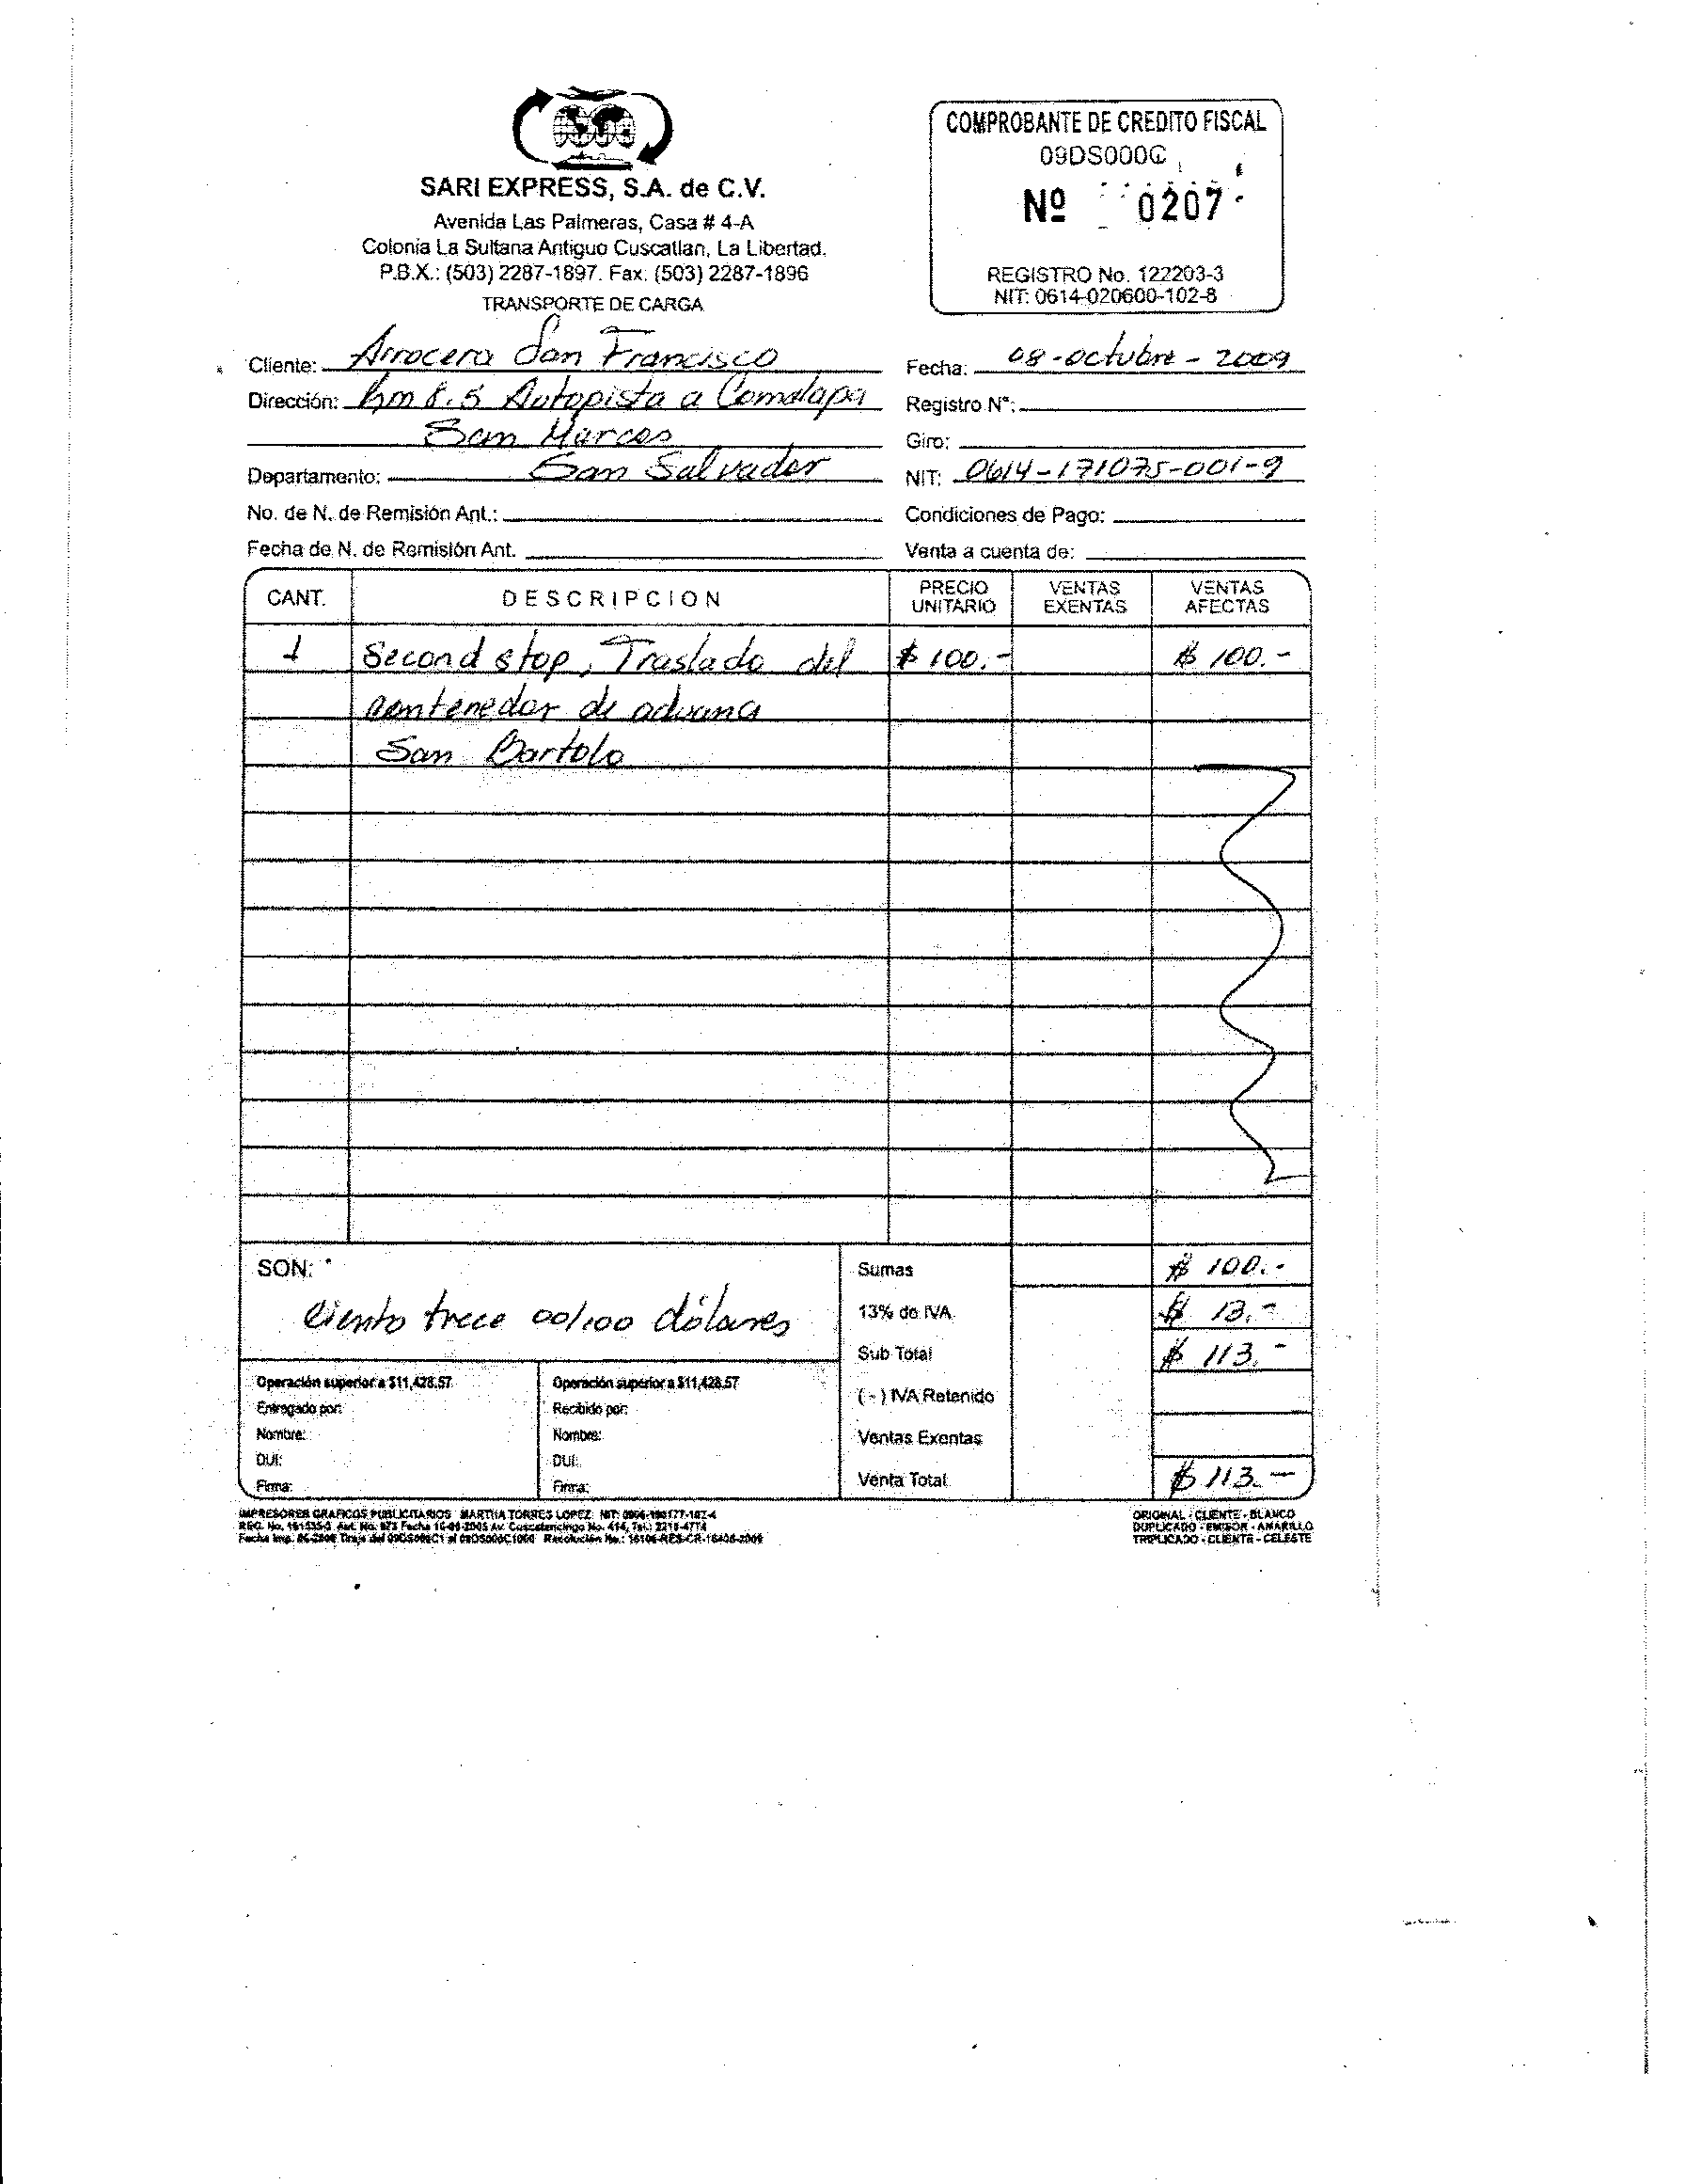 SARI EXPRESS, S.A. de C.V.
Avenida Las Palmeras, Casa # 4-A
Colonia La Sultana Antiguo Cuscatlan, La Libertad.
P.B.X.: (503) 2287-1897. Fax: (503) 2287-1896
TRANSPORTE DE CARGA
COMPROBANTE DE CREDITO FISCAL
09DS000C
Nº 0207
REGISTRO No. 122203-3
NIT: 0614-020600-102-8
Cliente: Arrocera San Francisco
Fecha: 08-octubre-2009
Dirección: Km 8.5 Autopista a Comalapa
Registro N°:
San Marcos
Giro:
Departamento: San Salvador
NIT: 0614-171075-001-9
No. de N. de Remisión Ant.:
Condiciones de Pago:
Fecha de N. de Remisión Ant.
Venta a cuenta de:
CANT. DESCRIPCION PRECIO UNITARIO VENTAS EXENTAS VENTAS AFECTAS
1 Second stop, Traslado del $100.- $100.-
contenedor de aduana
San Bartolo
SON:
Ciento trece 00/100 dólares
Sumas $100.-
13% de IVA $13.-
Sub Total $113.-
(-) IVA Retenido
Ventas Exentas
Venta Total $113.-
Operación superior a $11,428.57
Entregado por:
Nombre:
DUI:
Firma:
Operación superior a $11,428.57
Recibido por:
Nombre:
DUI:
Firma:
IMPRESORES GRAFICOS PUBLICITARIOS MARTHA TORRES LOPEZ
ORIGINAL - CLIENTE - BLANCO
DUPLICADO - EMISOR - AMARILLO
TRIPLICADO - CLIENTE - CELESTE